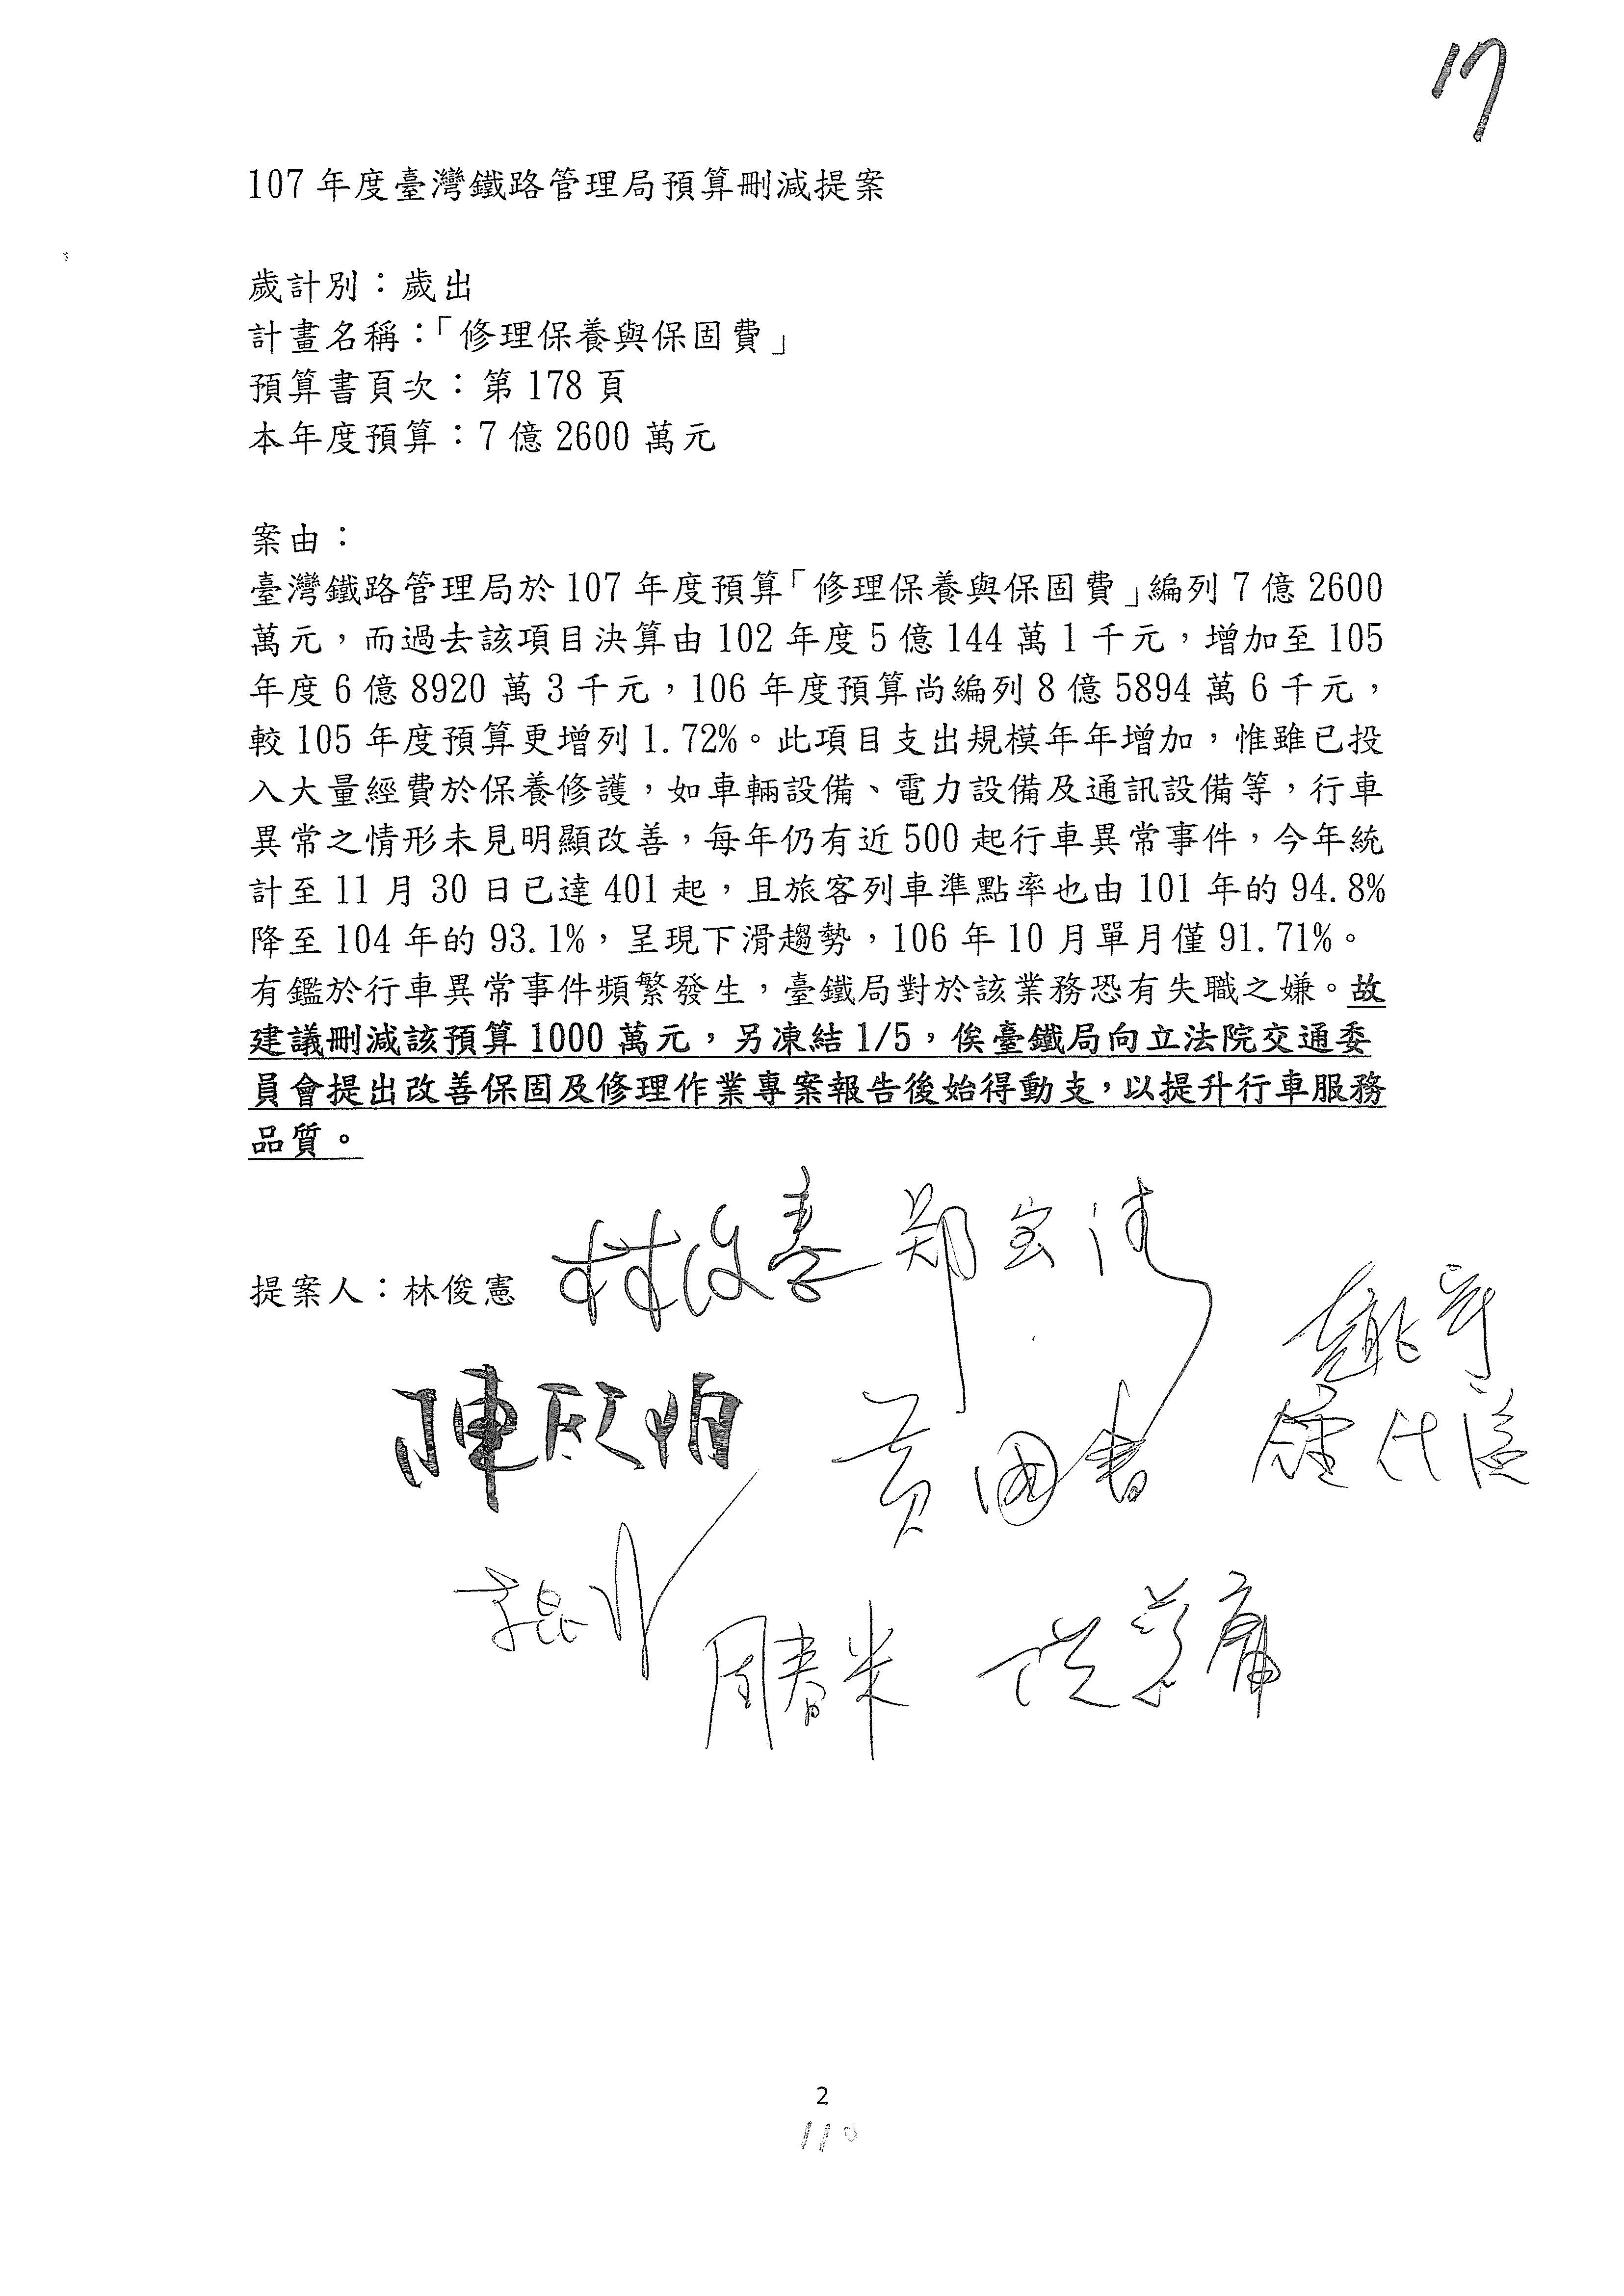 17
107 年度臺灣鐵路管理局預算刪減提案
歲計別：歲出
計畫名稱：「修理保養與保固費」
預算書頁次：第 178 頁
本年度預算：7 億 2600 萬元
案由：
臺灣鐵路管理局於 107 年度預算「修理保養與保固費」編列 7 億 2600
萬元，而過去該項目決算由 102 年度 5 億 144 萬 1 千元，增加至 105
年度 6 億 8920 萬 3 千元，106 年度預算尚編列 8 億 5894 萬 6 千元，
較 105 年度預算更增列 1.72%。此項目支出規模年年增加，惟雖已投
入大量經費於保養修護，如車輛設備、電力設備及通訊設備等，行車
異常之情形未見明顯改善，每年仍有近 500 起行車異常事件，今年統
計至 11 月 30 日已達 401 起，且旅客列車準點率也由 101 年的 94.8%
降至 104 年的 93.1%，呈現下滑趨勢，106 年 10 月單月僅 91.71%。
有鑑於行車異常事件頻繁發生，臺鐵局對於該業務恐有失職之嫌。故
建議刪減該預算 1000 萬元，另凍結 1/5，俟臺鐵局向立法院交通委
員會提出改善保固及修理作業專案報告後始得動支，以提升行車服務
品質。
提案人：林俊憲 林俊憲 鄭宝清
陳歐珀 黃國書
周春米
2
110